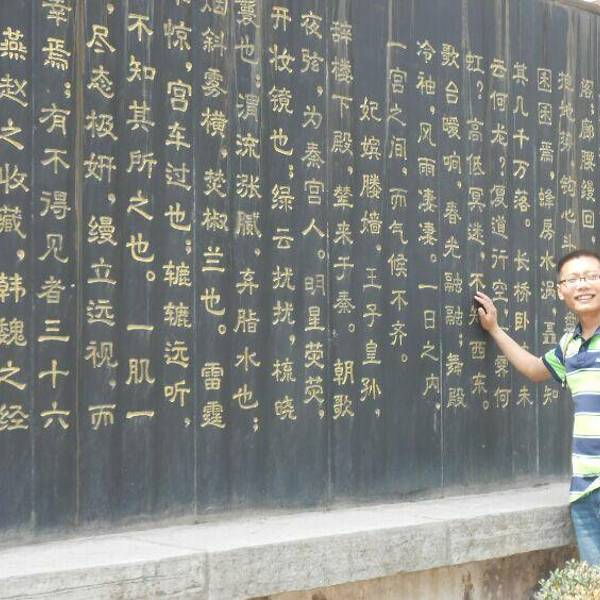 阁；廊腰缦回，
抱地势，钩心斗
囷囷焉，蜂房水涡，矗知
其几千万落。长桥卧未
云何龙？复道行空，霁何
虹？高低冥迷，不知西东。
歌台暖响，春光融融；舞殿
冷袖，风雨凄凄。一日之内，
一宫之间，而气候不齐。
妃嫔媵嫱，王子皇孙，
辞楼下殿，辇来于秦。朝歌
夜弦，为秦宫人。明星荧荧，
开妆镜也；绿云扰扰，梳晓
鬟也；渭流涨腻，弃脂水也；
烟斜雾横，焚椒兰也。雷霆
乍惊，宫车过也；辘辘远听，
不知其所之也。一肌一
，尽态极妍，缦立远视，而
幸焉；有不得见者三十六
燕赵之收藏，韩魏之经